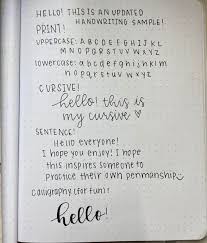 HELLO! THIS IS AN UPDATED
HANDWRITING SAMPLE!
PRINT!
UPPERCASE: A B C D E F G H I J K L
M N O P Q R S T U V W X Y Z
lowercase: a b c d e f g h i j k l m
n o p q r s t u v w x y z
CURSIVE!
hello! this is
my cursive ♡
SENTENCE!
Hello everyone!
I hope you enjoy! I hope
this inspires someone to
practice their own penmanship
calligraphy (for fun)!
hello!